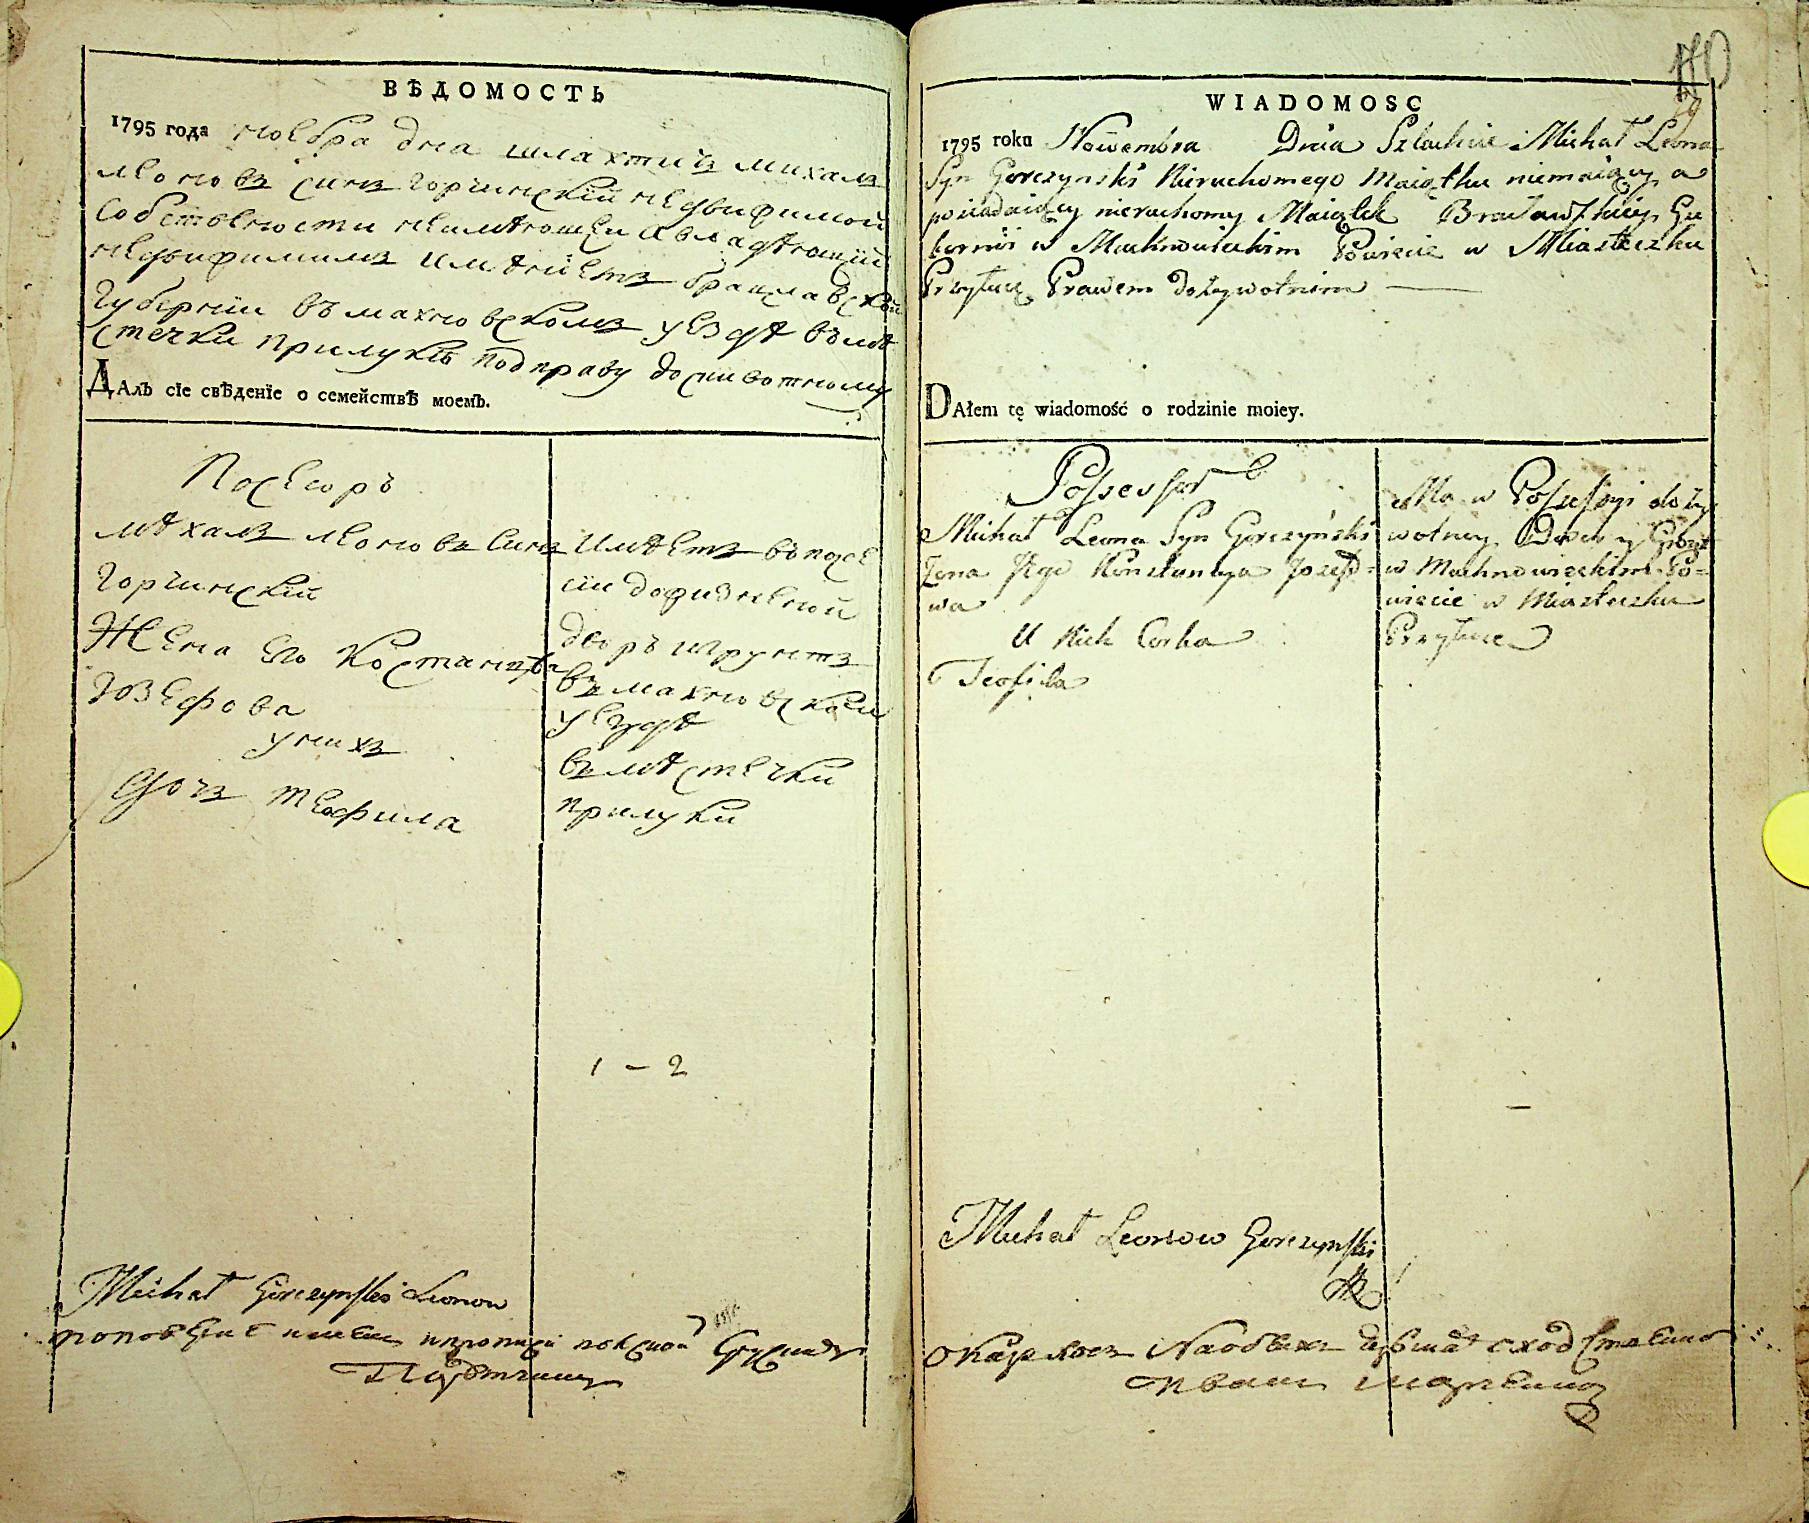 ВѢДОМОСТЬ
1795 года ноебра дна шлахтичъ михалъ
леоновъ синъ горчинскій недвижимой
собствености неимѣющеи авладѣющій
недвижимимъ имѣніетъ брацлавской
губерніи въ махновскомъ уездѣ въмѣ
стечки прилукіъ подправу доживотному
Далъ сїе свѣденїе о семействѣ моемъ.
Посесоръ
мѣхалъ леоновъ синъ
горчинскій
Жена его Костанція
Юзефова
унихъ
дочъ теофила
имѣетъ въпосе
сіи
дворъ игрунтъ
въмахновском
уездѣ
въмѣстечки
прилуки
1 – 2
Michał Gorczynski Leonow
WIADOMOSC
1795 roku Nowembra Dnia Szlachcic Michał Leona
Syn Gorczynski Nieruchomego Maiątku niemaiący a
posiadaiący nieruchomy Maiątek Bracławskiey Gu
bernii w Machnowieckim Powiecie w Miasteczku
Przyłuce Prawem dożywotnim
DAłem tę wiadomość o rodzinie moiey.
Possessor
Michał Leona Syn Gorczyński
Zona Jego Konstancya Jozefo=
wa
U Nich Corka
Teofila
Ma w Possessyi doży
wotney Dwor y Grunt
w Machnowieckim Po=
wiecie w Miasteczku
Przyłuce
Michał Leonow Gorczynski